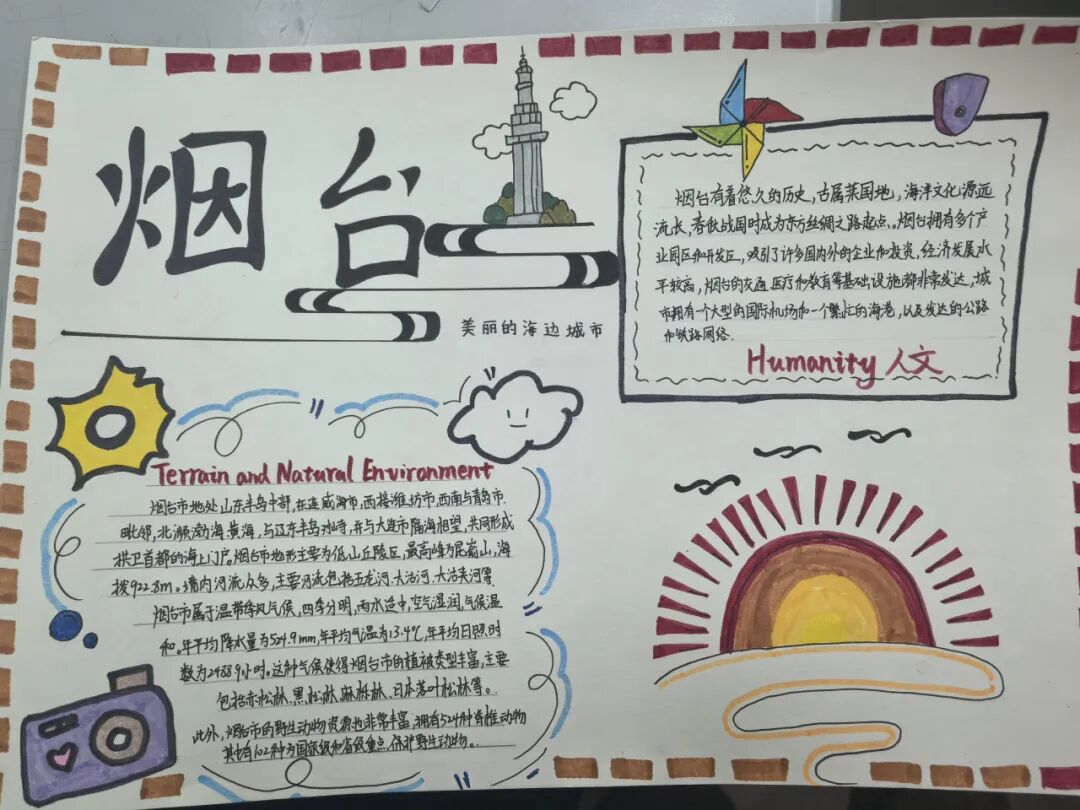 烟台
美丽的海边城市
烟台有着悠久的历史，古属莱国地，海洋文化源远
流长，春秋战国时成为东方丝绸之路起点。烟台拥有多个产
业园区和开发区，吸引了许多国内外的企业和投资，经济发展水
平较高，烟台的交通、医疗和教育等基础设施都非常发达，城
市拥有一个大型的国际机场和一个繁忙的海港，以及发达的公路
和铁路网络.
Humanity 人文
Terrain and Natural Environment
烟台市地处山东半岛中部，东连威海市，西接潍坊市，西南与青岛市
毗邻，北濒渤海、黄海，与辽东半岛对峙，并与大连市隔海相望，共同形成
拱卫首都的海上门户。烟台市地形主要为低山丘陵区，最高峰为昆嵛山，海
拨922.8m。境内河流众多，主要河流包括五龙河、大沽河、大沽夹河等
烟台市属于温带季风气候，四季分明，雨水适中，空气湿润，气候温
和。年平均降水量为524.9mm，年平均气温为13.4℃，年平均日照时
数为2488.9小时。这种气候使得烟台市的植被类型丰富，主要
包括赤松林、黑松林、麻栎林、日本落叶松林等。
此外，烟台市的野生动物资源也非常丰富，拥有524种脊椎动物
其中有102种为国家级和省级重点保护野生动物。